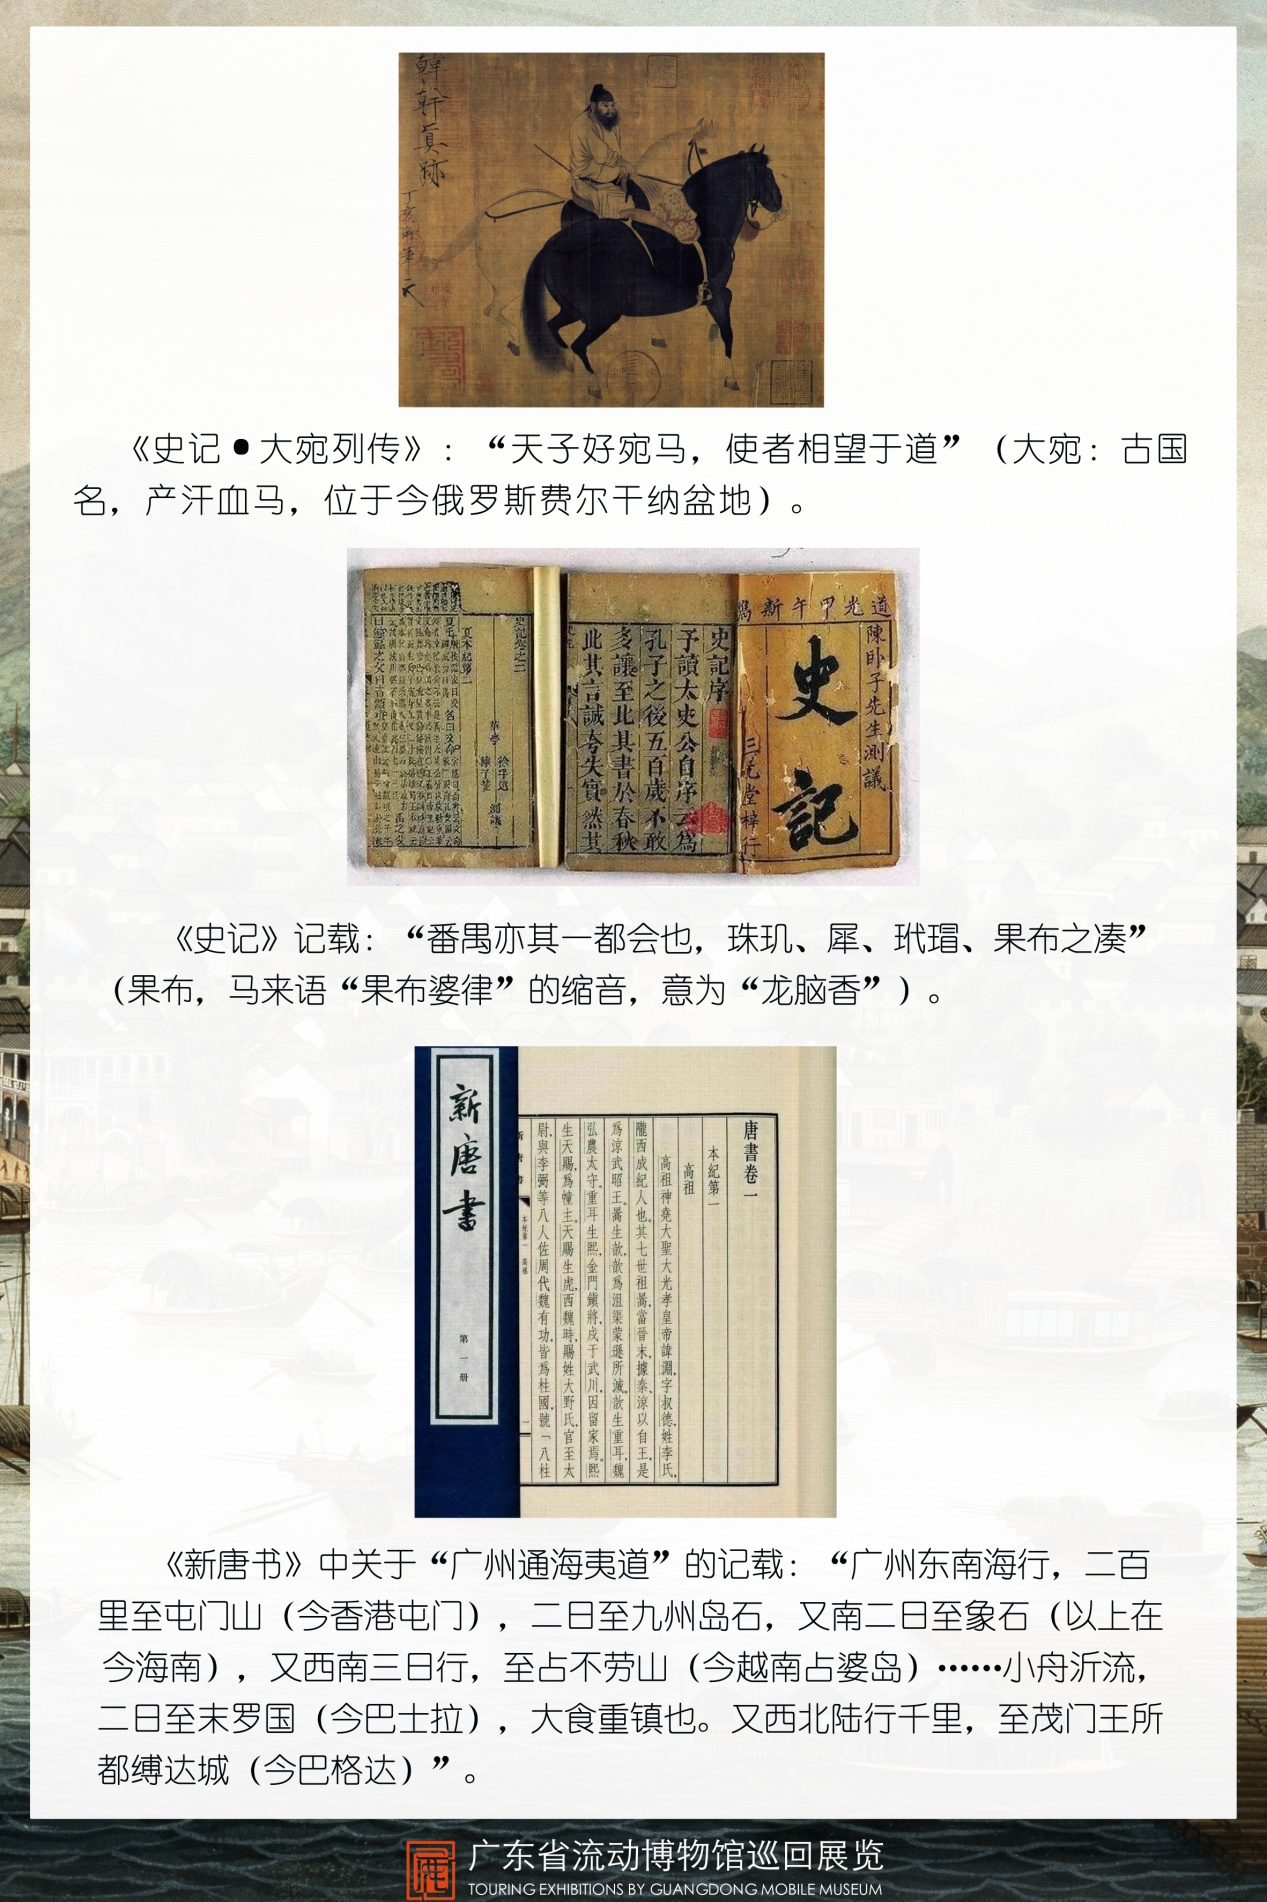 韓幹真跡
《史记•大宛列传》：“天子好宛马，使者相望于道”（大宛：古国
名，产汗血马，位于今俄罗斯费尔干纳盆地）。
道光甲午新鐫
陳卧子先生測議
史記
三元堂梓行
史記序
予讀太史公自序云為
孔子之後五百歲不敢
多讓至此其書於春秋
此其言誠夸失實然其
史記卷之二
夏本紀第二
《史记》记载：“番禺亦其一都会也，珠玑、犀、玳瑁、果布之凑”
（果布，马来语“果布婆律”的缩音，意为“龙脑香”）。
新唐書
第一册
唐書卷一
本紀第一
高祖
高祖神堯大聖大光孝皇帝諱淵，字叔德，姓李氏，
隴西成紀人也。其七世祖暠，當晉末，據秦、涼以自王，是
為涼武昭王。暠生歆，歆為沮渠蒙遜所滅。歆生重耳，魏
弘農太守。重耳生熙，金門鎮將，戍于武川，因留家焉。熙
生天賜，為幢主。天賜生虎，西魏時，賜姓大野氏，官至太
尉，與李弼等八人佐周代魏有功，皆為柱國，號「八柱
《新唐书》中关于“广州通海夷道”的记载：“广州东南海行，二百
里至屯门山（今香港屯门），二日至九州岛石，又南二日至象石（以上在
今海南），又西南三日行，至占不劳山（今越南占婆岛）……小舟沂流，
二日至末罗国（今巴士拉），大食重镇也。又西北陆行千里，至茂门王所
都缚达城（今巴格达）”。
广东省流动博物馆巡回展览
TOURING EXHIBITIONS BY GUANGDONG MOBILE MUSEUM